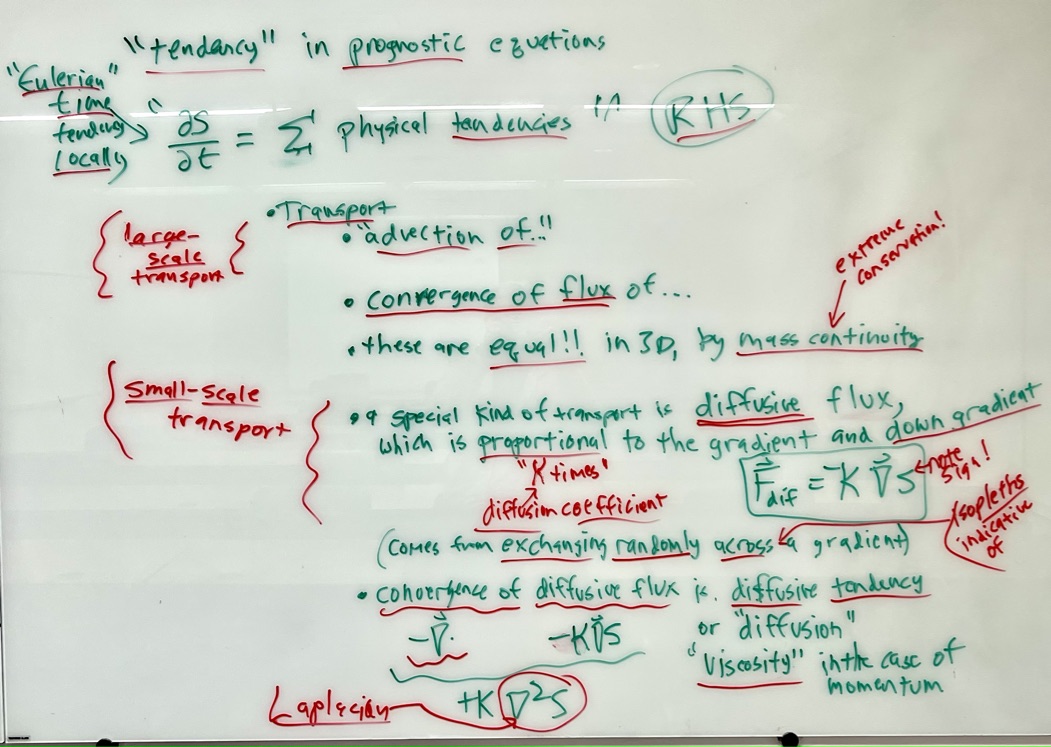 "tendency" in prognostic equations
"Eulerian"
time
tendency
locally
"∂S/∂t = Σ physical tendencies" RHS
• Transport
large-
scale
transport
• "advection of.."
extreme
conservation!
• convergence of flux of...
• these are equal!! in 3D, by mass continuity
small-scale
transport
• a special kind of transport is diffusive flux,
which is proportional to the gradient and down gradient
"K times"
diffusion coefficient
F⃗dif = -K ∇⃗S
note
sign!
isopleths
indicative
of
(comes from exchanging randomly across a gradient)
• convergence of diffusive flux is. diffusive tendency
or "diffusion"
-∇⃗· -K∇⃗S
"viscosity" in the case of
momentum
Laplacian
+K ∇²S